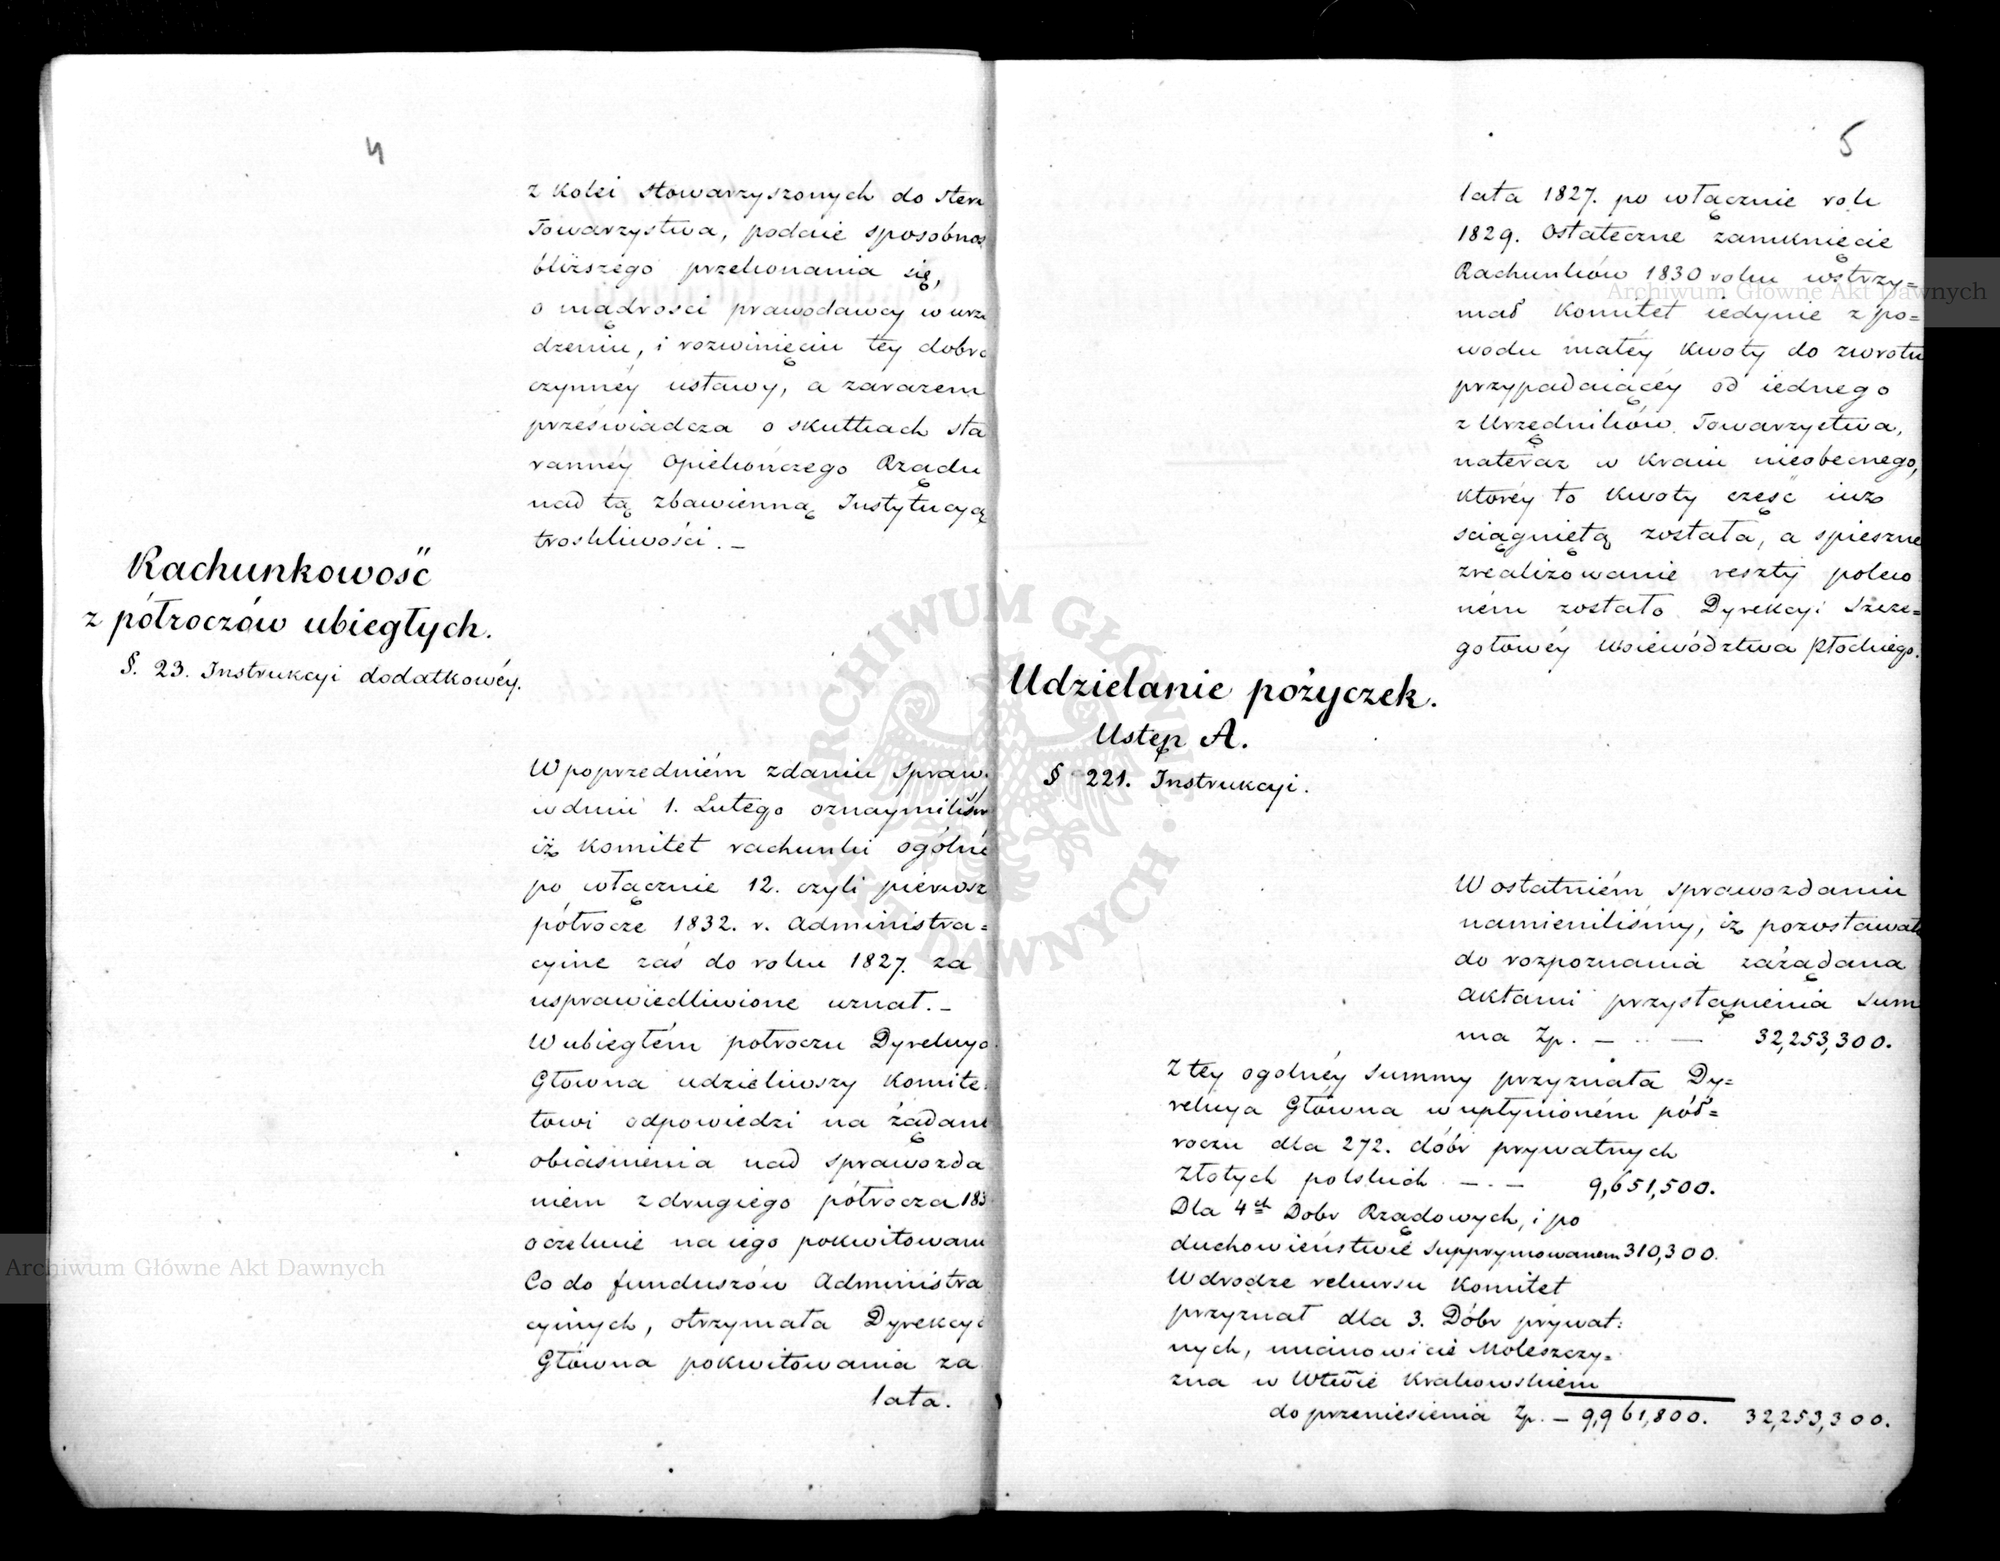 4
z kolei stowarzyszonych do steru
Towarzystwa, podaie sposobnos
bliższego przekonania się,
o mądrości prawodawcy w urzą
dzeniu, i rozwinięciu tey dobro
czynnéy ustawy, a zarazem
przeświadcza o skutkach sta
rannéy Opiekończego Rządu
nad tą zbawienną Instytucyą
troskliwości. –
Rachunkowość
z półroczów ubiegłych.
§. 23. Instrukcyi dodatkowéy.
W poprzedniém zdaniu spraw.
w dniu 1. Lutego oznaymiliśmy
iż Komitet rachunki ogólne
po włącznie 12. czyli pierwsz
półrocze 1832. r. Administra=
cyine zaś do roku 1827. za
usprawiedliwione uznał. –
W ubiegłém półroczu Dyrekcya
Główna udzieliwszy Komite
towi odpowiedzi na żądane
obiaśnienia nad sprawozda
niem z drugiego półrocza 183
oczekuie na iego pokwitowanie
Co do funduszów Administra
cyinych, otrzymała Dyrekcya
Główna pokwitowania za
lata.
5
lata 1827. po włącznie rok
1829. Ostateczne zamknięcie
Rachunków 1830 roku wstrzy=
mał Komitet iedynie z po=
wodu małéy kwoty do zwrotu
przypadaiącéy od iednego
z Urzędników Towarzystwa,
nateraz w kraiu nieobecnego,
któréy to kwoty część iuż
sciągniętą została, a spieszne
zrealizowanie reszty poleco
ném zostało Dyrekcyi Szcze=
gółowéy Woiewództwa Płockiego.
Udzielanie pożyczek.
Ustęp A.
§ 221. Instrukcyi.
W ostatniém sprawozdaniu
namieniliśmy, iż pozostawała
do rozpoznania zażądana
aktami przystąpienia Sum
ma Zp. – .. – 32,253,300.
Z tey ogolnéy Summy przyznała Dy=
rekcya Główna w upłynioném pół=
roczu dla 272. dóbr prywatnych
złotych polskich – . – 9,651,500.
Dla 4ch Dobr Rządowych, i po
duchowieństwie supprymowaném 310,300.
W drodze rekursu Komitet
przyznał dla 3. Dóbr prywat:
nych, mianowicie Moleszczy=
zna w Wtwie Krakowskiem
do przeniesienia Zp. – 9,961,800. 32,253,300.
Archiwum Główne Akt Dawnych
Archiwum Główne Akt Dawnych
ARCHIWUM GŁÓWNE · AKT DAWNYCH ·